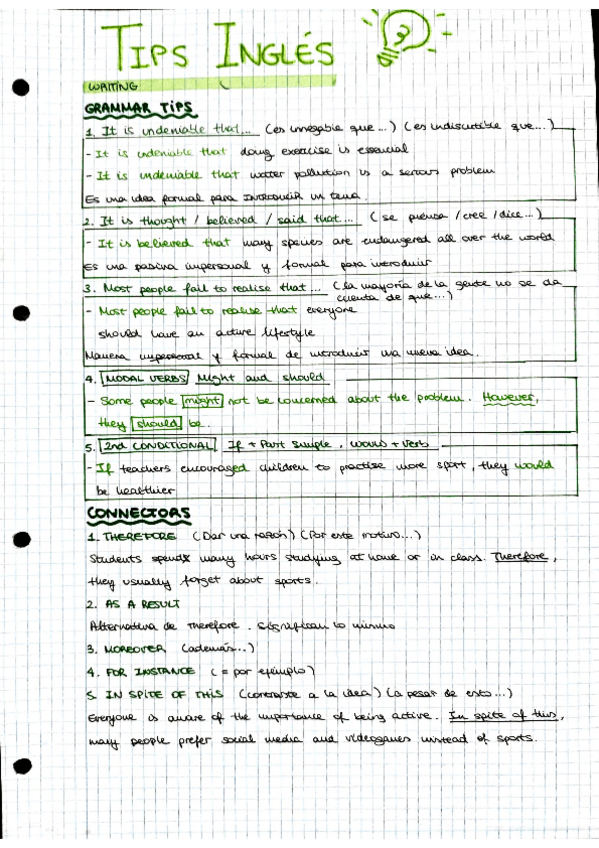 TIPS INGLÉS
WRITING
GRAMMAR TIPS
1. It is undeniable that... (es innegable que...) (es indiscutible que...)
- It is undeniable that doing exercise is essencial
- It is undeniable that water pollution is a serious problem
Es una idea formal para INTRODUCIR un tema.
2. It is thought / believed / said that... (se piensa / cree / dice...)
- It is believed that many species are endangered all over the world
Es una pasiva impersonal y formal para introducir
3. Most people fail to realise that... (la mayoría de la gente no se da
cuenta de que...)
- Most people fail to realise that everyone
should have an active lifestyle
Manera impersonal y formal de introducir una nueva idea.
4. MODAL VERBS Might and should
- Some people might not be concerned about the problem. However,
they should be.
5. 2nd CONDITIONAL If + Past Simple, would + verb
- If teachers encouraged children to practise more sport, they would
be healthier
CONNECTORS
1. THEREFORE (Dar una razón) (Por este motivo...)
Students spend many hours studying at home or in class. Therefore,
they usually forget about sports.
2. AS A RESULT
Alternativa de Therefore. Significan lo mismo
3. MOREOVER (además...)
4. FOR INSTANCE (= por ejemplo)
5. IN SPITE OF THIS (contraste a la idea) (a pesar de esto...)
Everyone is aware of the importance of being active. In spite of this,
many people prefer social media and videogames instead of sports.